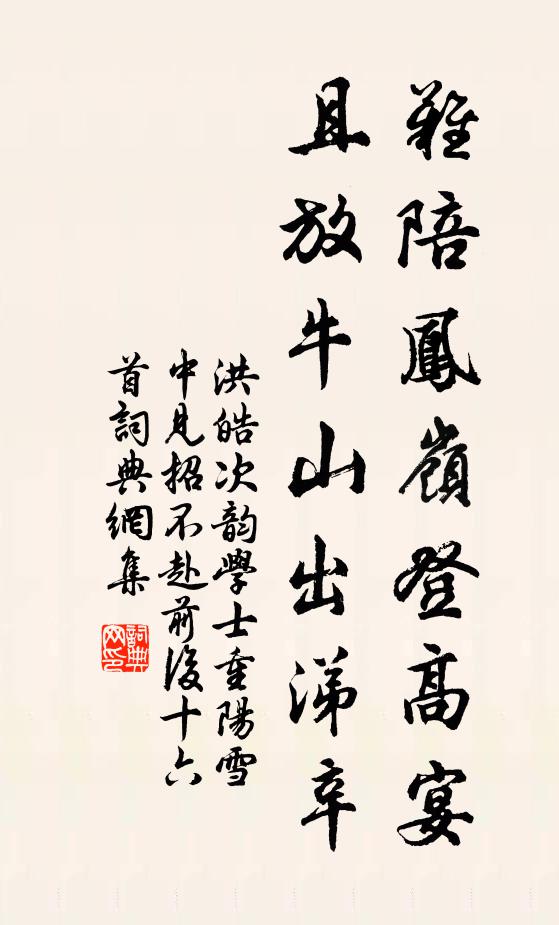 難陪鳳嶺登高宴
且放牛山出涕辛
洪皓次韵學士重陽雪
中見招不赴前後十六
首詞典網集
詞典
网印